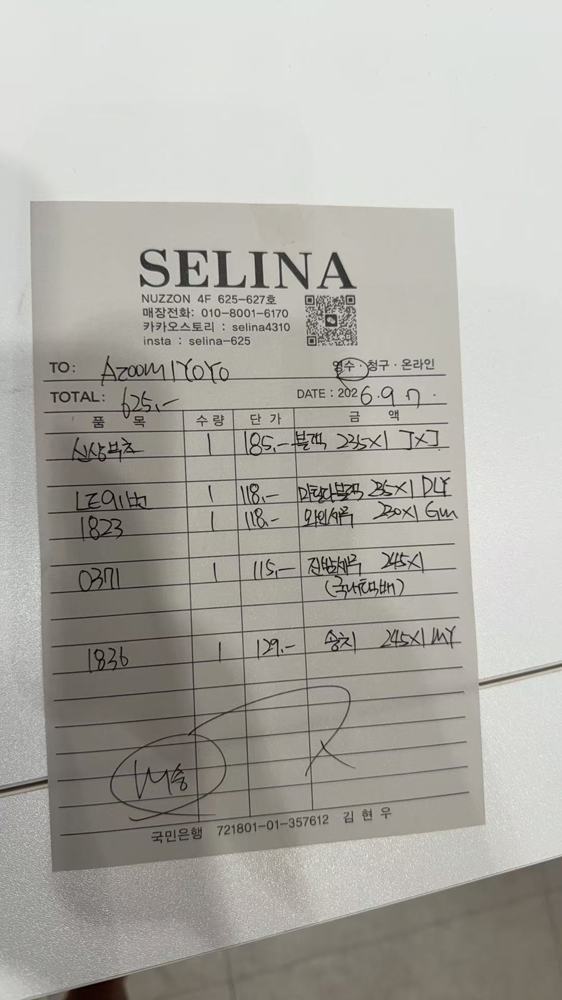 SELINA
NUZZON 4F 625-627호
매장전화: 010-8001-6170
카카오스토리 : selina4310
insta : selina-625
TO: AZOOMIYOYO 영수 · 청구 · 온라인
TOTAL: 625.- DATE : 2026.9 7.
품 목 수량 단 가 금 액
신상부츠 1 185.- 블랙 235X1 JXJ
LE91번 1 118.- 블랙 235X1 DLY
1823 1 118.- 와인세무 230X1 Gm
0371 1 115.- 진밤세무 245X1
1836 1 129.- 송치 245X1 MY
국민은행 721801-01-357612 김현우